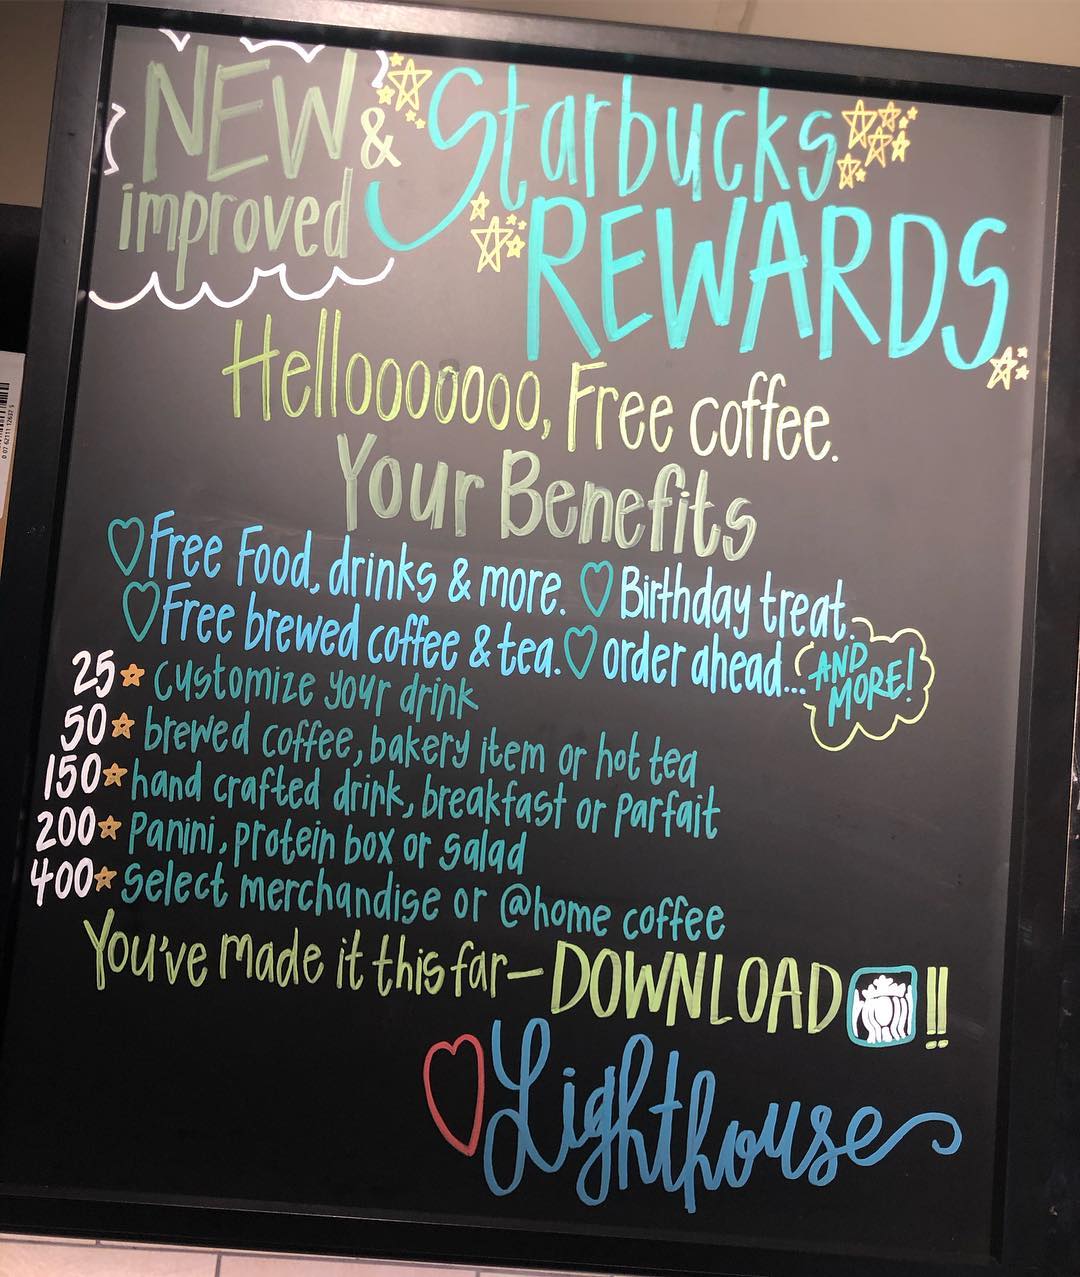 NEW & Starbucks
improved REWARDS
Hellooooooo, Free coffee.
Your Benefits
Free Food, drinks & more. Birthday treat.
Free brewed coffee & tea. order ahead... AND MORE!
25 customize your drink
50 brewed coffee, bakery item or hot tea
150 hand crafted drink, breakfast or parfait
200 Panini, protein box or salad
400 Select merchandise or @home coffee
You've made it this far - DOWNLOAD !!
Lighthouse